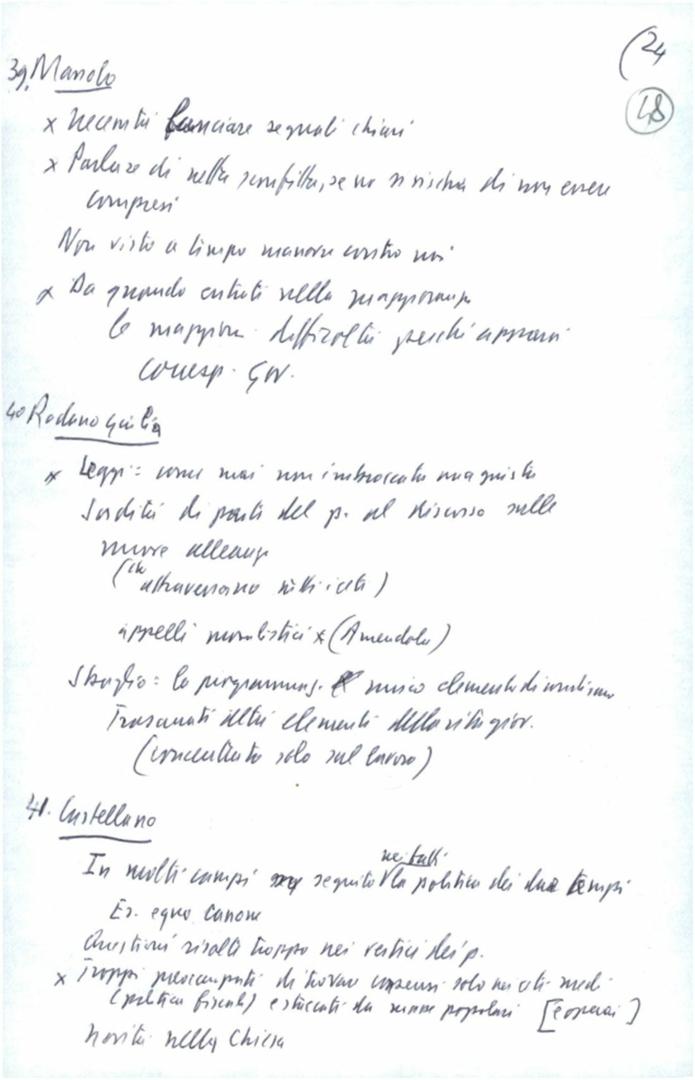 (24
48
39. Manolo
x Necessità lanciare segnali chiari
x Parlare di netta sconfitta, se no si rischia di non essere
compresi
Non visto a tempo manovre contro noi
x Da quando entrati nella maggioranza
le maggiori difficoltà perché apparsi
corresp. Gov.
40 Rodano Giulia
x Leggi: come mai non imbroccata una giusta
Sordità di parti del p. al discorso sulle
nuove alleanze
(che attraversano tutti i ceti)
appelli moralistici x (Amendola)
Sbaglio: la programmaz. unico elemento di
Trascurati altri elementi della vita giov.
(concentrato solo sul lavoro)
41. Castellano
In molti campi seguito nei fatti la politica dei due tempi
Es. equo canone
Questioni risolte troppo nei vertici dei p.
x Troppi preoccupati di trovare consensi solo nei ceti medi
(politica fiscale) e staccati da masse popolari [operai]
Novità nella Chiesa